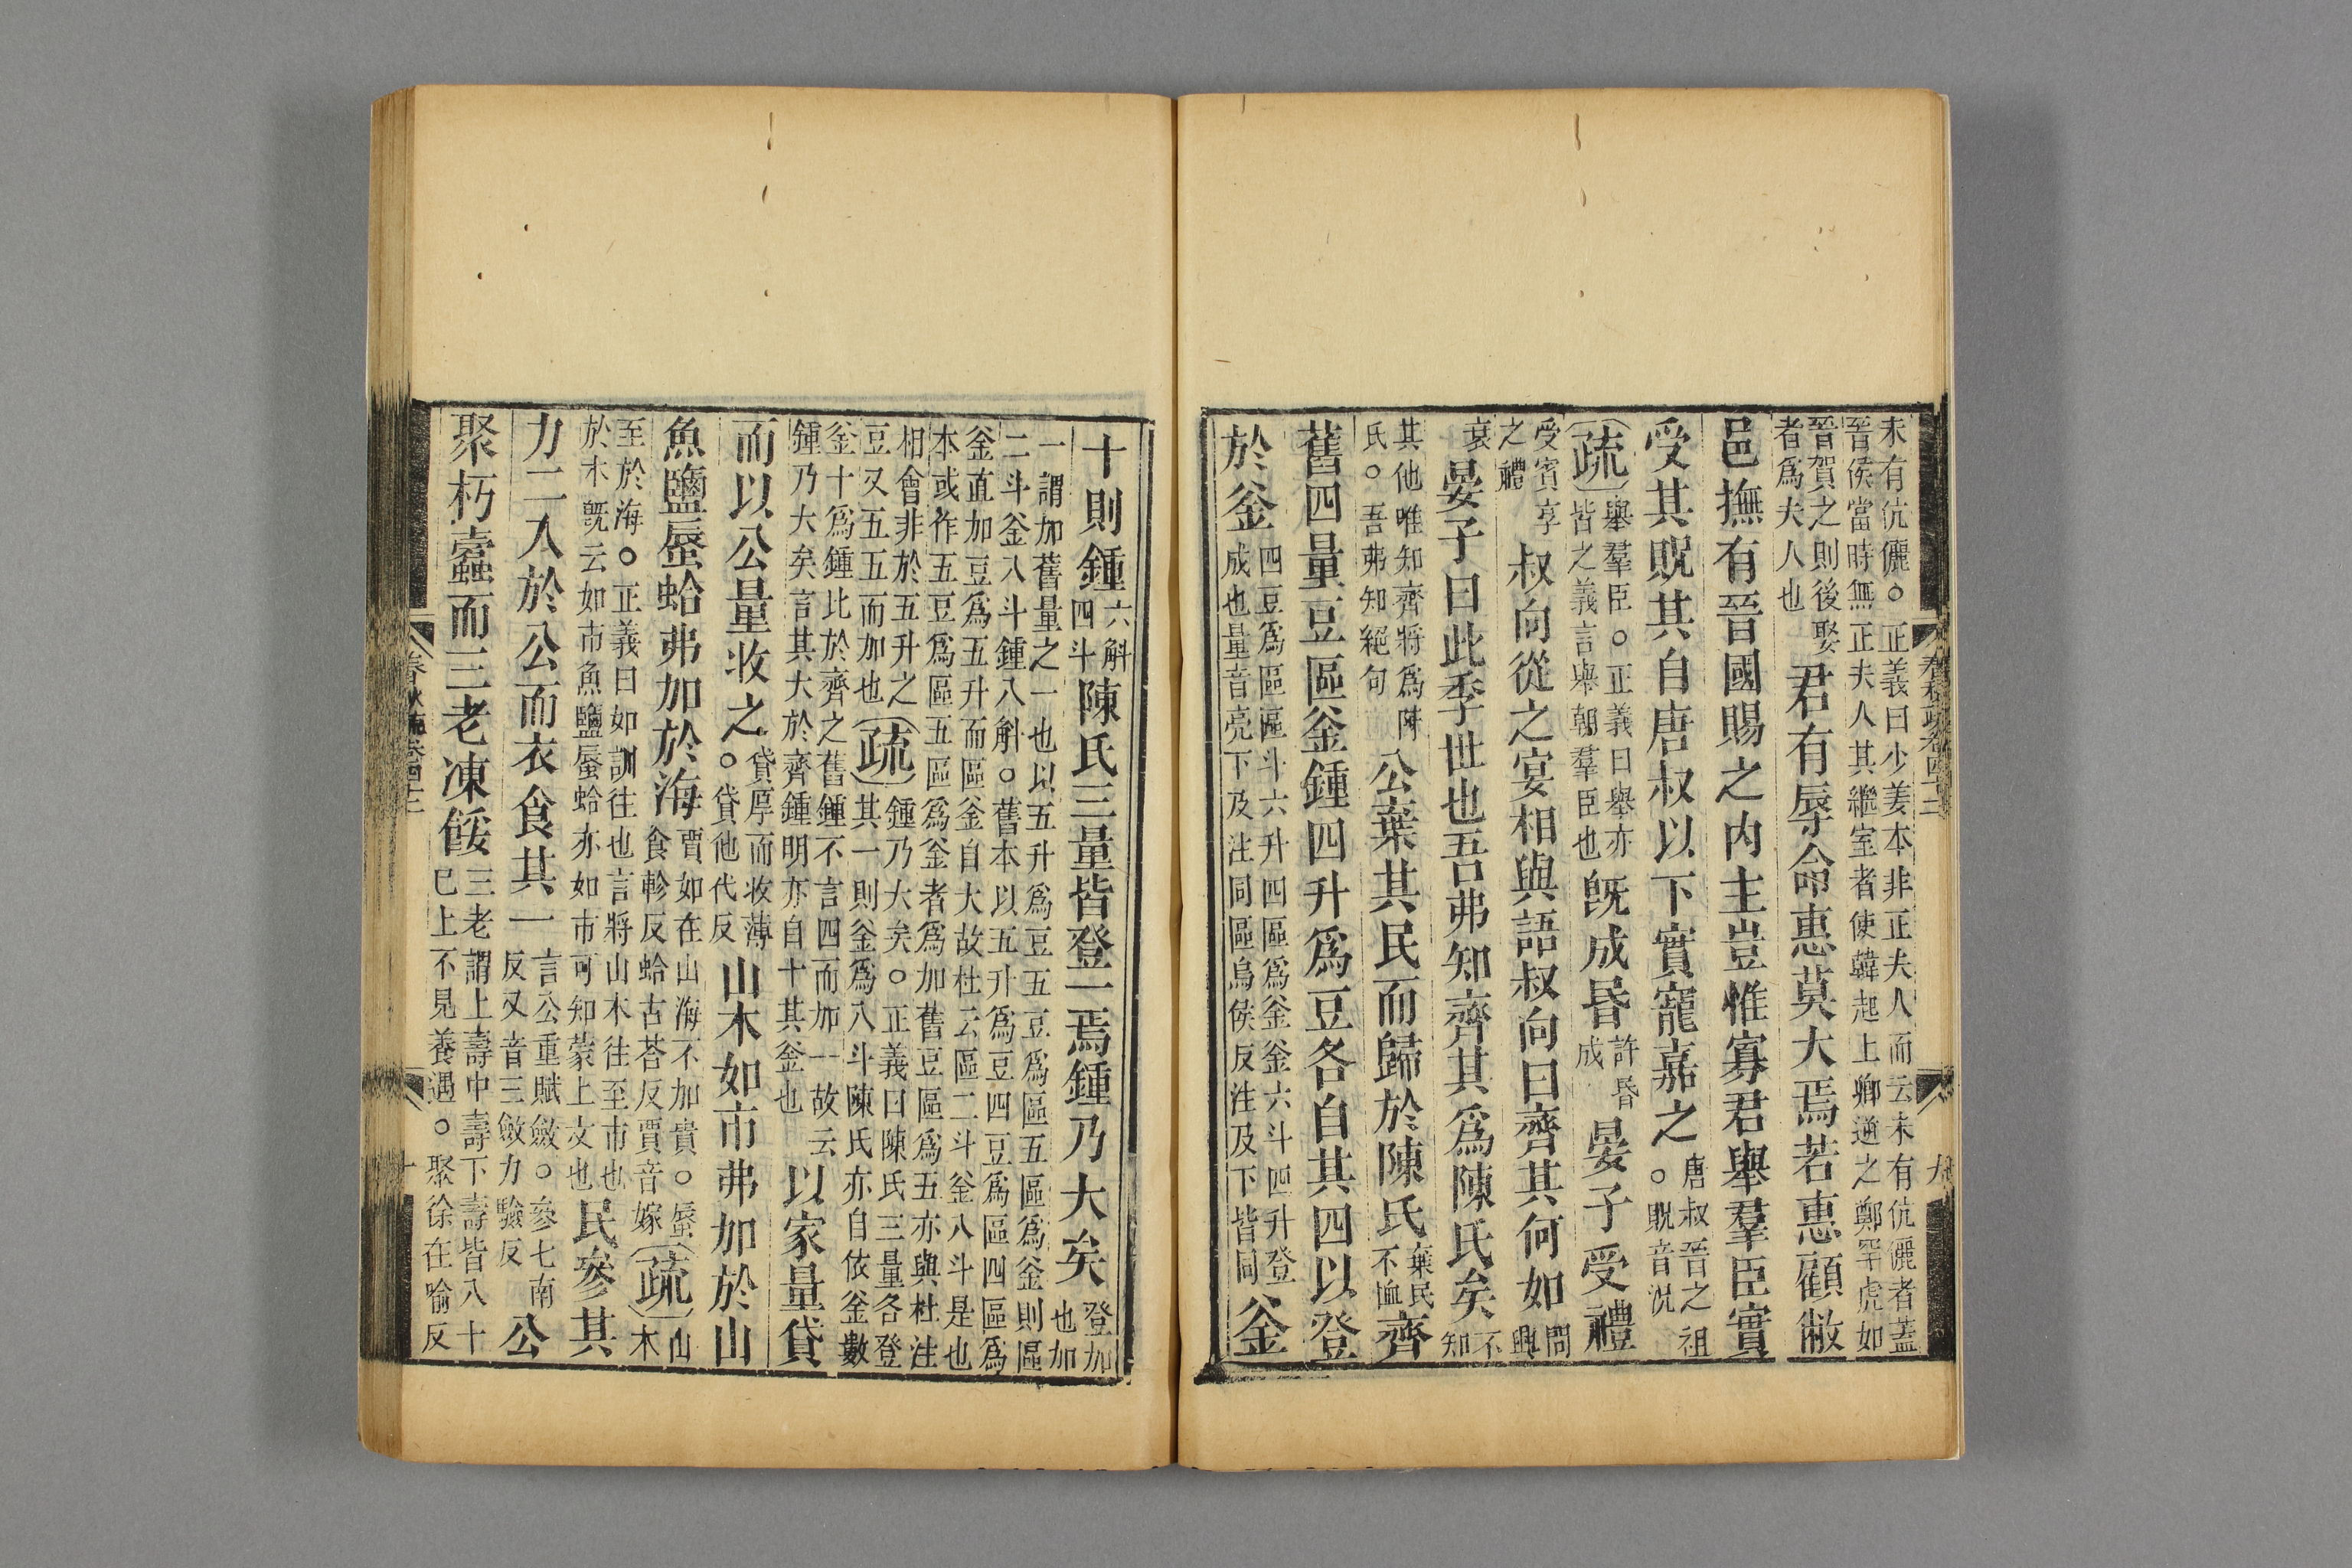 未有伉儷○正義曰少姜本非正夫人而云未有伉儷者蓋
晉侯當時無正夫人其繼室者使韓起上卿逆之鄭罕虎如
晉賀之則後娶
者爲夫人也
君有辱命惠莫大焉若惠顧敝
邑撫有晉國賜之內主豈惟寡君舉羣臣實
受其貺其自唐叔以下實寵嘉之
唐叔晉之祖
○貺音況
疏
舉羣臣○正義曰舉亦
皆之義言舉朝羣臣也
旣成昏
許昏
成
晏子受禮
受賓享
之禮
叔向從之宴相與語叔向曰齊其何如
問
興
衰
晏子曰此季世也吾弗知齊其爲陳氏矣
不
知
其他唯知齊將爲陳
氏○吾弗知絕句
公棄其民而歸於陳氏
棄民
不恤
齊
舊四量豆區釜鍾四升爲豆各自其四以登
於釜
四豆爲區區斗六升四區爲釜釜六斗四升登
成也量音亮下及注同區烏侯反注及下皆同
釜
春秋疏卷四十二
九
十則鍾
六斛
四斗
陳氏三量皆登一焉鍾乃大矣
登加
也加
一謂加舊量之一也以五升爲豆五豆爲區五區爲釜則區
二斗釜八斗鍾八斛○舊本以五升爲豆四豆爲區四區爲
釜直加豆爲五升而區釜自大故杜云區二斗釜八斗是也
本或作五豆爲區五區爲釜者爲加舊豆區爲五亦與杜注
相會非於五升之
豆又五五而加也
疏
鍾乃大矣○正義曰陳氏三量各登
其一則釜爲八斗陳氏亦自依釜數
釜十爲鍾比於齊之舊鍾不言四而加一故云
鍾乃大矣言其大於齊鍾明亦自十其釜也
以家量貸
而以公量收之
貸厚而收薄
○貸他代反
山木如市弗加於山
魚鹽蜃蛤弗加於海
賈如在山海不加貴○蜃
食軫反蛤古荅反賈音嫁
疏
山
木
至於海○正義曰如訓往也言將山木往至市也
於木旣云如市魚鹽蜃蛤亦如市可知蒙上文也
民參其
力二入於公而衣食其一
言公重賦斂○參七南
反又音三斂力驗反
公
聚朽蠹而三老凍餒
三老謂上壽中壽下壽皆八十
已上不見養遇○聚徐在喻反
春秋疏卷四十二
十